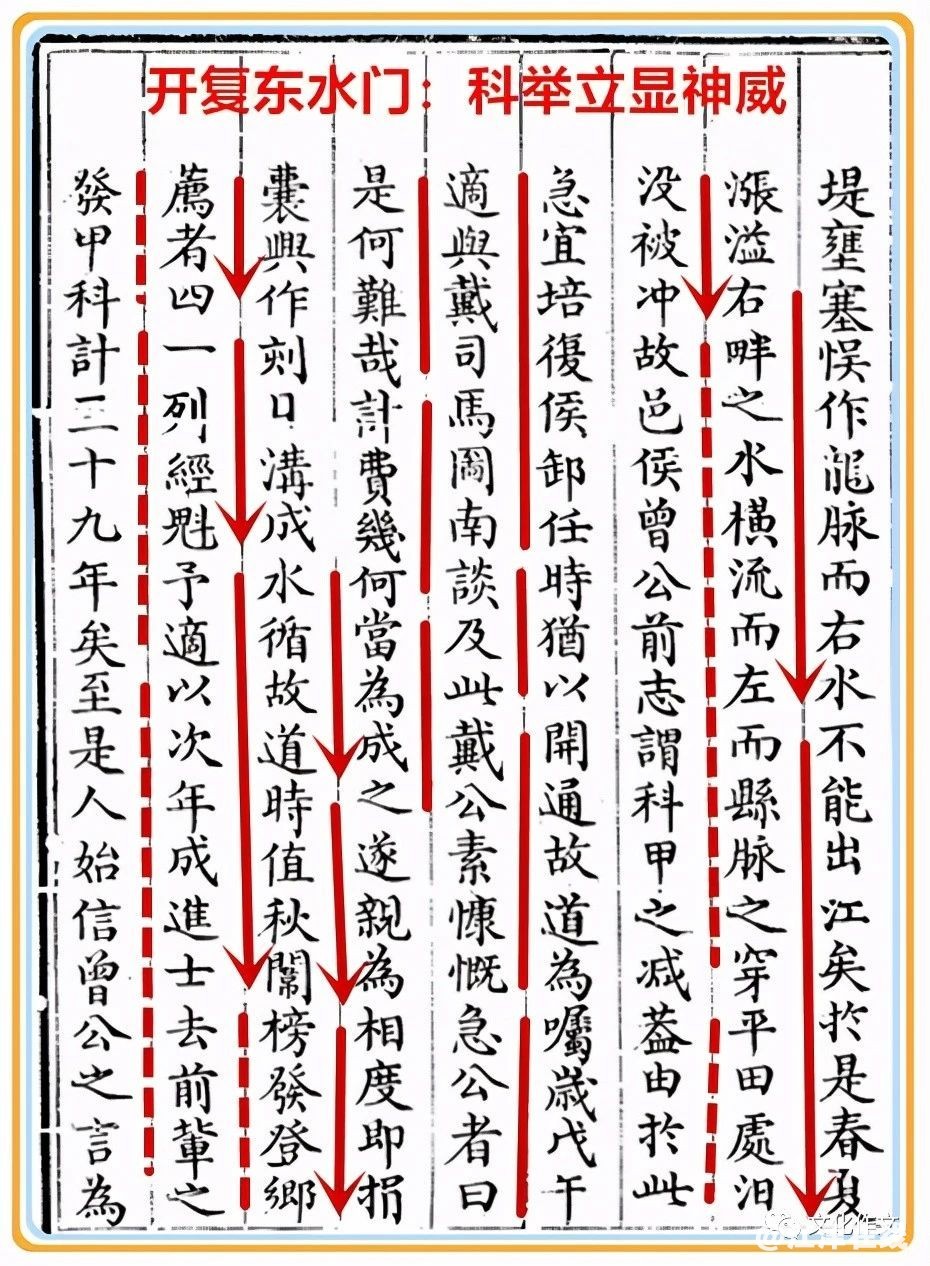 开复东水门：科举立显神威
堤壅塞悮作龍脉而右水不能出江矣於是春夏
漲溢右畔之水橫流而左而縣脉之穿平田處汩
没被冲故邑侯曾公前志謂科甲之减葢由於此
急宜培復侯卸任時猶以開通故道為囑歲戊午
適與戴司馬圖南談及此戴公素慷慨急公者曰
是何難哉計費幾何當為成之遂親為相度即捐
囊興作刻日溝成水循故道時值秋闈榜發登鄉
薦者四一列經魁予適以次年成進士去前軰之
發甲科計二十九年矣至是人始信曾公之言為
文化作文